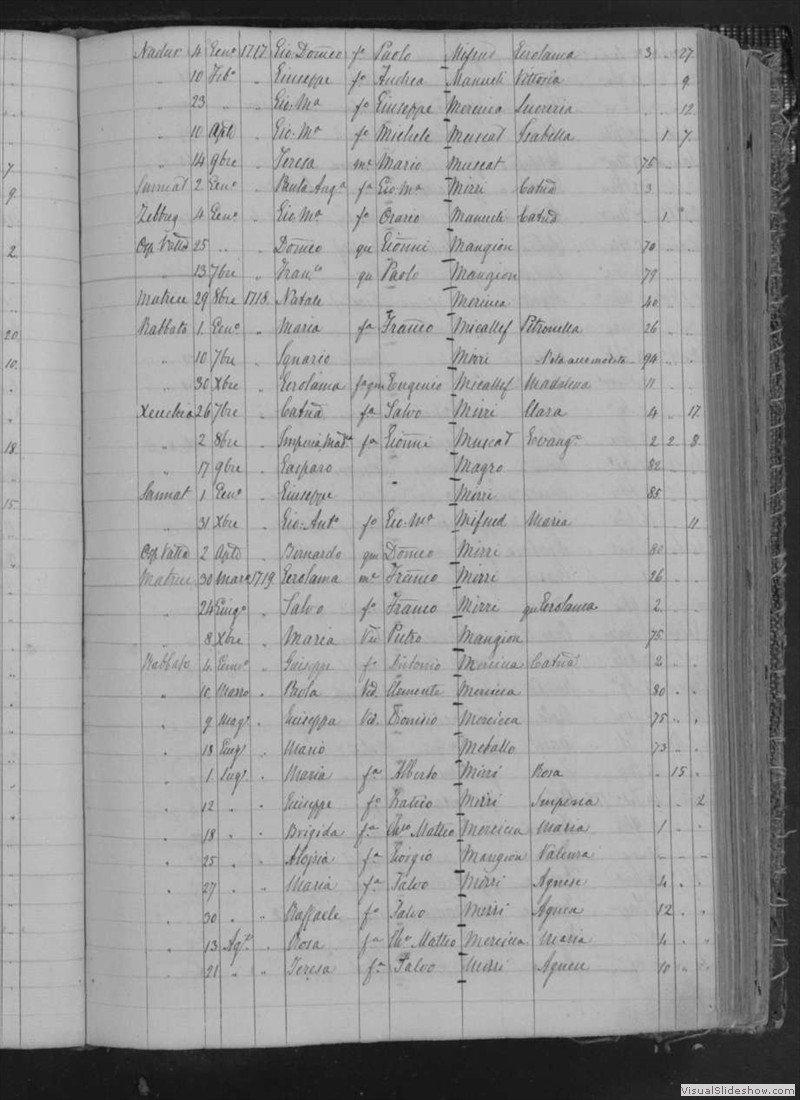 7
9
2
20
10
18
15
Nadur 4 Genº 1717 Gio Domeo fº Paolo Mifsud Gerolama 3 .. 27
.. 10 Febº .. Giuseppe fº Andrea Manueli Vittoria 9
.. 23 .. .. Gio. Mª fº Giuseppe Lucrezia .. 12
.. 10 Aple .. Gio. Mª fº Michele Muscat Isabella 1 7
.. 14 9bre .. Teresa mª Mario Muscat 75
Sannat 2 Genº .. Paula Angª fª Gio Mª Mizzi Catnª 3
Zebbug 4 Genº .. Gio. Mª fº Orazio Manueli Catnª 1
25 .. .. Domeo qm Gionni Mangion 70
.. 13 7bre .. Franco qm Paolo Mangion 79
Matrice 29 8bre 1718 Natale 40
Rabbato 1 Genº .. Maria fª Franco Micallef Petronella 26
.. 10 7bre .. Ignazio Mizzi 94
.. 30 Xbre .. Gerolama fª qm Eugenio Micallef Madalena 11
Xeuchia 26 7bre .. Catnª fª Salvo Mizzi Clara 4 .. 17
.. 2 8bre .. Imperia Madª fª Gionni Muscat Evangª 2 2 8
.. 17 9bre .. Gasparo Magro 82
Sannat 1 Genº .. Giuseppe Mizzi 85
.. 31 Xbre .. Gio: Antº fº Gio Mª Mifsud Maria 11
2 Aple .. Bernardo qm Domeo Mizzi 80
Matrice 30 Marzo 1719 Gerolama mª Franco Mizzi 26
.. 24 Giugº .. Salvo fº Franco Mizzi qm Gerolama 2
.. 8 Xbre .. Maria Vid Pietro Mangion 75
Rabbato 4 Genº .. Guiseppe fº Antonio Catnª 2
. 10 Marzo .. Paola Vid. Clemente 80
. 9 Magº .. Guiseppa Vid. Dionisio 75
. 13 Giugº .. Mario 73
. 1 Lugº . Maria fª Alberto Mizzi Rosa . 15 .
. 12 . . Guiseppe fº Mizzi Imperia 2
. 18 . . Brigida fª Matteo Maria 1
. 25 . . fª Giorgio Mangion
. 27 . .. Maria fª Salvo Mizzi Agnese 4
. 30 . .. Raffaele fº Salvo Mizzi 12
. 13 Agº .. Rosa fª Matteo Maria 4
. 21 .. .. Teresa fª Salvo Mizzi 10
VisualSlideshow.com